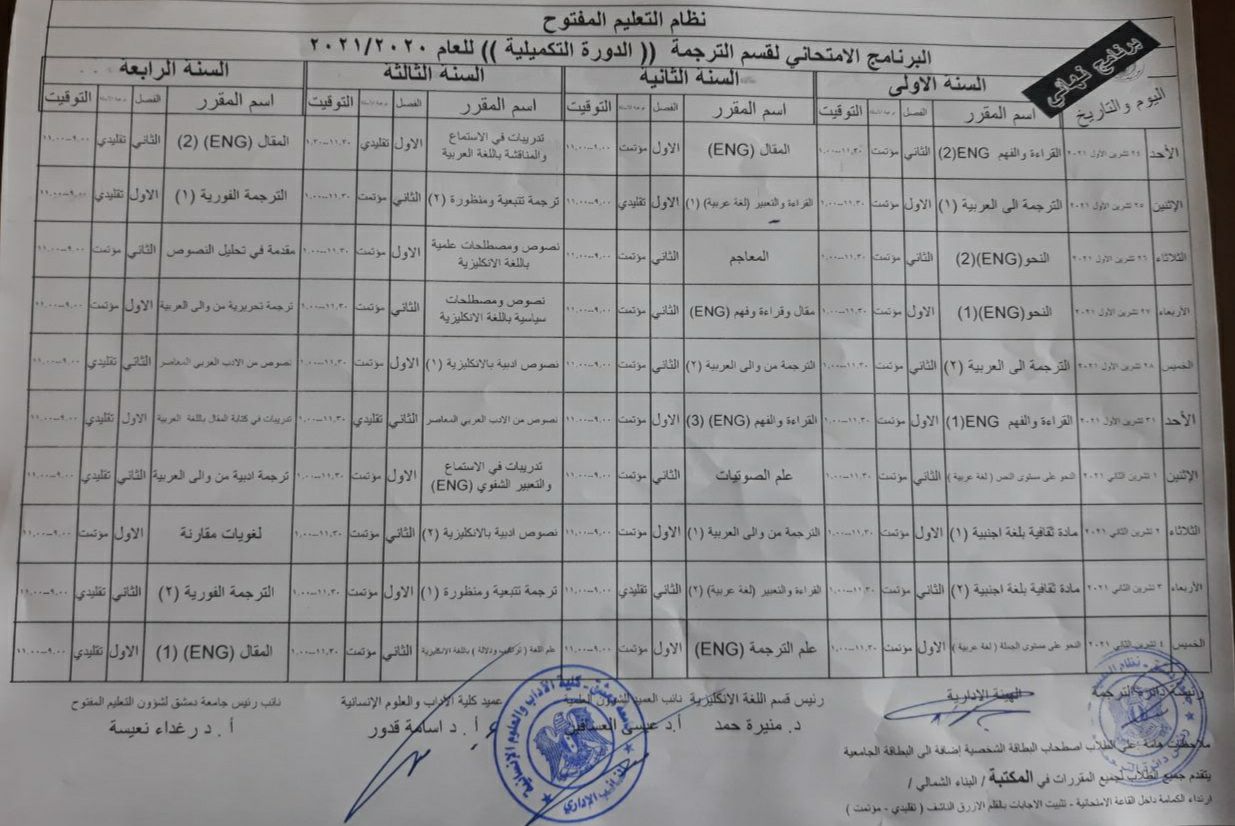 نظام التعليم المفتوح
البرنامج الامتحاني لقسم الترجمة (( الدورة التكميلية )) للعام ٢٠٢١/٢٠٢٠
برنامج نهائي
اليوم والتاريخ السنة الاولى السنة الثانية السنة الثالثة السنة الرابعة
اسم المقرر الفصل التوقيت اسم المقرر الفصل التوقيت اسم المقرر الفصل التوقيت اسم المقرر الفصل التوقيت
الأحد ٢٤ تشرين الاول ٢٠٢١ القراءة والفهم ENG(2) الثاني مؤتمت ١١،٣٠-١،٠٠ المقال (ENG) الاول مؤتمت ٩،٠٠-١١،٠٠ تدريبات في الاستماع والمناقشة باللغة العربية الاول تقليدي ١١،٣٠-١،٣٠ المقال (ENG) (2) الثاني تقليدي ٩،٠٠-١١،٠٠
الإثنين ٢٥ تشرين الاول ٢٠٢١ الترجمة الى العربية (١) الاول مؤتمت ١١،٣٠-١،٠٠ القراءة والتعبير (لغة عربية) (١) الاول تقليدي ٩،٠٠-١١،٠٠ ترجمة تتبعية ومنظورة (٢) الثاني مؤتمت ١١،٣٠-١،٠٠ الترجمة الفورية (١) الاول تقليدي ٩،٠٠-١١،٠٠
الثلاثاء ٢٦ تشرين الاول ٢٠٢١ النحو(ENG)(2) الثاني مؤتمت ١١،٣٠-١،٠٠ المعاجم الثاني مؤتمت ٩،٠٠-١١،٠٠ نصوص ومصطلحات علمية باللغة الانكليزية الاول مؤتمت ١١،٣٠-١،٠٠ مقدمة في تحليل النصوص الثاني مؤتمت ٩،٠٠-١١،٠٠
الأربعاء ٢٧ تشرين الاول ٢٠٢١ النحو(ENG)(1) الاول مؤتمت ١١،٣٠-١،٠٠ مقال وقراءة وفهم (ENG) الثاني مؤتمت ٩،٠٠-١١،٠٠ نصوص ومصطلحات سياسية باللغة الانكليزية الثاني مؤتمت ١١،٣٠-١،٠٠ ترجمة تحريرية من والى العربية الاول مؤتمت ٩،٠٠-١١،٠٠
الخميس ٢٨ تشرين الاول ٢٠٢١ الترجمة الى العربية (٢) الثاني مؤتمت ١١،٣٠-١،٠٠ الترجمة من والى العربية (٢) الثاني مؤتمت ٩،٠٠-١١،٠٠ نصوص ادبية بالانكليزية (١) الاول مؤتمت ١١،٣٠-١،٠٠ نصوص من الادب العربي المعاصر الثاني تقليدي ٩،٠٠-١١،٠٠
الأحد ٣١ تشرين الاول ٢٠٢١ القراءة والفهم ENG(1) الاول مؤتمت ١١،٣٠-١،٠٠ القراءة والفهم (ENG) (3) الاول مؤتمت ٩،٠٠-١١،٠٠ نصوص من الادب العربي المعاصر الثاني تقليدي ١١،٣٠-١،٠٠ تدريبات في كتابة المقال باللغة العربية الاول تقليدي ٩،٠٠-١١،٠٠
الإثنين ١ تشرين الثاني ٢٠٢١ النحو على مستوى النص ( لغة عربية ) الثاني مؤتمت ١١،٣٠-١،٠٠ علم الصوتيات الثاني مؤتمت ٩،٠٠-١١،٠٠ تدريبات في الاستماع والتعبير الشفوي (ENG) الاول مؤتمت ١١،٣٠-١،٠٠ ترجمة ادبية من والى العربية الثاني تقليدي ٩،٠٠-١١،٠٠
الثلاثاء ٢ تشرين الثاني ٢٠٢١ مادة ثقافية بلغة اجنبية (١) الاول مؤتمت ١١،٣٠-١،٠٠ الترجمة من والى العربية (١) الاول مؤتمت ٩،٠٠-١١،٠٠ نصوص ادبية بالانكليزية (٢) الثاني مؤتمت ١١،٣٠-١،٠٠ لغويات مقارنة الاول مؤتمت ٩،٠٠-١١،٠٠
الأربعاء ٣ تشرين الثاني ٢٠٢١ مادة ثقافية بلغة اجنبية (٢) الثاني مؤتمت ١١،٣٠-١،٠٠ القراءة والتعبير (لغة عربية) (٢) الثاني تقليدي ٩،٠٠-١١،٠٠ ترجمة تتبعية ومنظورة (١) الاول مؤتمت ١١،٣٠-١،٠٠ الترجمة الفورية (٢) الثاني تقليدي ٩،٠٠-١١،٠٠
الخميس ٤ تشرين الثاني ٢٠٢١ النحو على مستوى الجملة ( لغة عربية ) الاول مؤتمت ١١،٣٠-١،٠٠ علم الترجمة (ENG) الاول مؤتمت ٩،٠٠-١١،٠٠ علم اللغة ( تراكيب ودلالة ) باللغة الانكليزية الثاني مؤتمت ١١،٣٠-١،٠٠ المقال (ENG) (1) الاول تقليدي ٩،٠٠-١١،٠٠
رئيسة دائرة الترجمة الهيئة الإدارية رئيس قسم اللغة الانكليزية نائب العميد للشؤون العلمية عميد كلية الاداب والعلوم الإنسانية نائب رئيس جامعة دمشق لشؤون التعليم المفتوح
د. منيرة حمد أ.د عيسى العساقين أ . د اسامة قدور أ . د رغداء نعيسة
ملاحظات هامة على الطلاب اصطحاب البطاقة الشخصية إضافة الى البطاقة الجامعية
يتقدم جميع الطلاب لجميع المقررات في المكتبة / البناء الشمالي /
ارتداء الكمامة داخل القاعة الامتحانية - تثبيت الاجابات بالقلم الازرق الناشف ( تقليدي - مؤتمت )